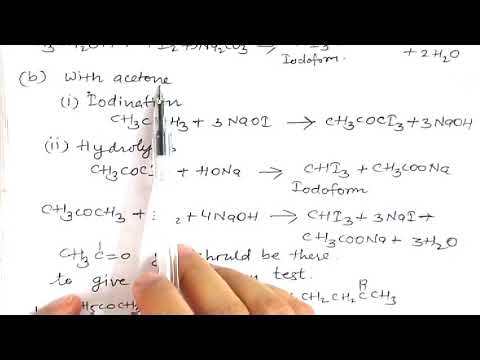 I2 + 3Na2CO3 → Iodoform + 2H2O
(b) With acetone
(i) Iodination
CH3C H3 + 3NaOI → CH3COCI3 + 3NaOH
(ii) Hydroly s
CH3COCI + HONa → CHI3 + CH3COONa
Iodoform
CH3COCH3 + 2 + 4NaOH → CHI3 + 3NaI +
CH3COONa + 3H2O
CH3C=O should be there
to give test.
CH2CH2CCH3